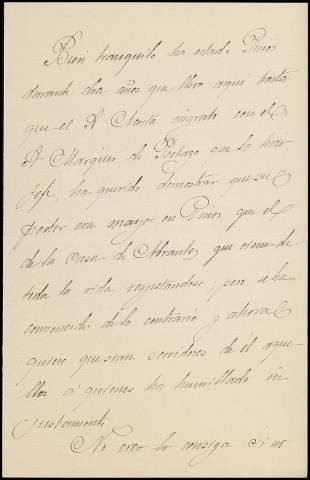 Bien tranquilo ha estado Pinós
durante dha años que llevo aquí hasta
que el R Chanta ingrato con el
R Marques de que le hizo
Jefe, ha querido demostrar que su
poder era mayor en Pinós que el
de la casa de Abrantes que viene de
toda la vida respetandose; pero se ha
convencido de lo contrario y ahora
quiere que sean servidores de él aque-
llos a quienes ha humillado in
justamente
No creo lo consiga si no